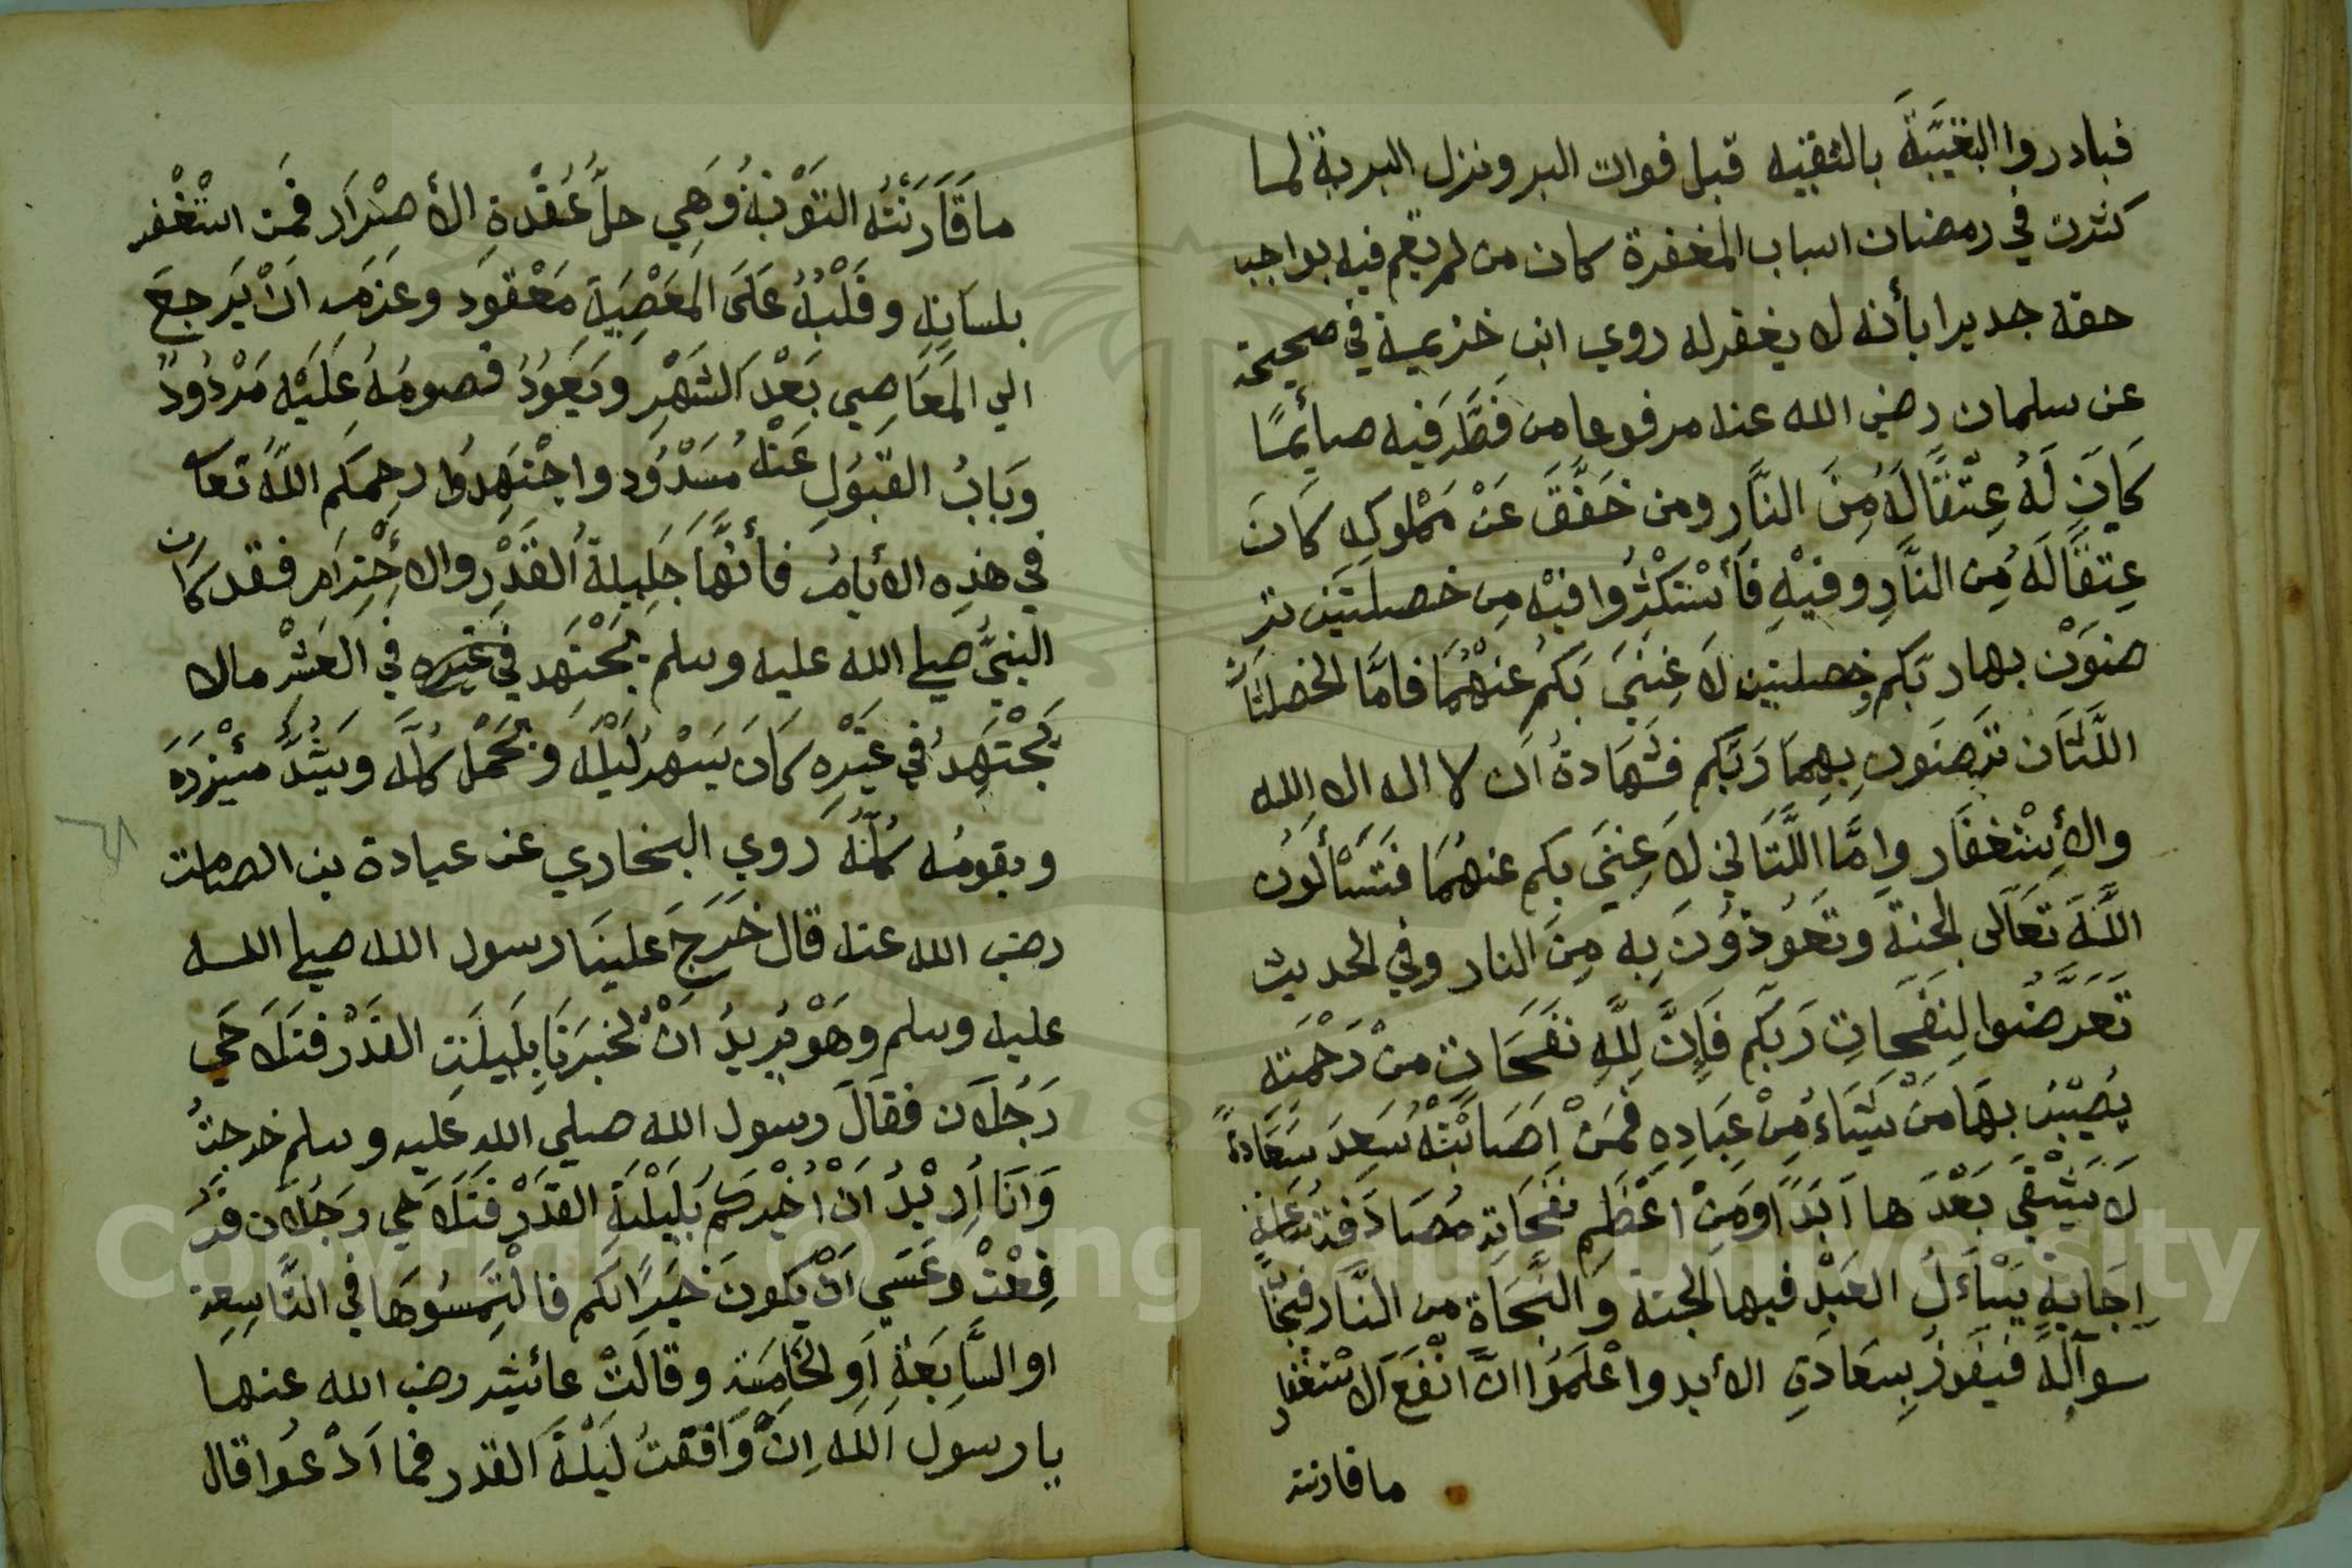 فبادروا البقيَّبَةَ بالتقيه قبل فوات البر ونزل البرية لما
كثرت في رمضان اسباب المغفرة كان من لم يقم فيه بواجب
حقه جديرا بأنه لا يغفر له روي ابن خزيمة في صحيحة
عن سلمان رضي الله عنه مرفوعا من فَطَّرَ فيه صائِمًا
كَانَ لَهُ عِتْقًا لَهُ مِنَ النَّارِ ومن خَفَّفَ عَنْ مَمْلوكِهِ كَانَ
عِتقًا لَهُ مِن النَّارِ وفيْهِ فَأسْتَكْثِرُوا فيْهِ مِن خصلتَين تر
ضوَنْ بها ربّكم وخصلتين لَا غِنَيَ بَكُم عَنْهُمَا فامَّا الخصلتَان
اللَّتَان ترضَون بِهِمَا رَبَّكم فشَهَادةُ اَن لا اله الا الله
والأسْتغفَار وامَّا اللَّتَانِ لَا غِنَي بكم عنهُمَا فَتَسْألُون
اللَّهَ تَعَالَى الجنةَ وتَعُوذُونَ بِه مِنَ النار وفي الحديث
تَعَرَّضُوا لِنفَحَاتِ رَبكَم فَإِنَّ لِلَّهِ نفَحَاتٍ مِنْ رَحْمَتِهِ
يُصيْبُ بهَا مَنْ يَشَاءُ مِنْ عِبَادِهِ فَمَنْ اَصَابَتْهُ سَعِدَ سَعَادةً
لَا يَشْقَي بَعْدَها اَبَدًا وَمِنْ اَعْظَمِ نفَحَاتِهِ مُصَادَفَة سَاعَة
اِجَابةٍ يَسْاَلُ العَبْد فيها الجنة وَالنَّجَاة من النَّار فيجَابُ
سوآلهُ فيَفوزُ بِسَعَادَةِ الأبد واعْلَمُوا انَّ اَنْفَعَ الاسْتغْفار
ماقارنته
ماقَارَنَتْهُ التَوْبَةُ وَهِي حلُّ عُقْدةِ الأصْرَار فَمَن استَغْفر
بلسَانِهِ وقَلْبُهُ عَلَي المَعَصْيَةِ مَعْقود وعَزمَه اَنْ يَرجعَ
الي المَعَاصِي بَعْد الشَهْر وَيعَودُ فصومُهُ عَلَيْه مَرْدُودٌ
وبَابُ القَبُولِ عَنْهُ مُسَدْوُد واجْتَهِدُوا رحِمَكم اللَّهُ تعا
في هذِه الأيامُ فأنهَا جَلِيلةُ القَدْرِ والأحْتِرَام فقد كان
النبيَّ صلي الله عليه وسلم يَجْتَهِد في العَشْر مالا
يَجْتَهِدُ في غيْرِهِ كَانَ يَسْهرُ لَيْلَهُ وَيَحْمل كلَّه ويَشُدُّ مئيْزرَهَ
ويقومُه كلّهُ رَوي البخاري عن عبادة بن الصامت
رضي الله عنه قال خَرَجَ علينَا رسول الله صلي الله
عليه وسلم وهَوْ يُريدُ انْ يُخبرَنَا بِلَيلَتِ القَدْر فتَلَاحَي
رَجُلَان فقَالَ رسول الله صلي الله عليه وسلم خرجتُ
وَاَنَا اُرِيْدُ اَنْ اُخْبِرَكُم بَلَيْلَةِ القدَرْ فَتَلَاحَي رَجُلَان فَرُ
فِعْتْ وعَسَي اَنْ يكونَ خيَرًا لكَم فالْتَمِسُوهَا في التَّاسِعةِ
او السَّابَعةِ اَو الخَامِسَة وقالَتْ عائشه رضي الله عنها
يا رسول اللَّه اِنْ وَافقْتُ لَيْلَةَ القدر فما اَدْعُوا قال